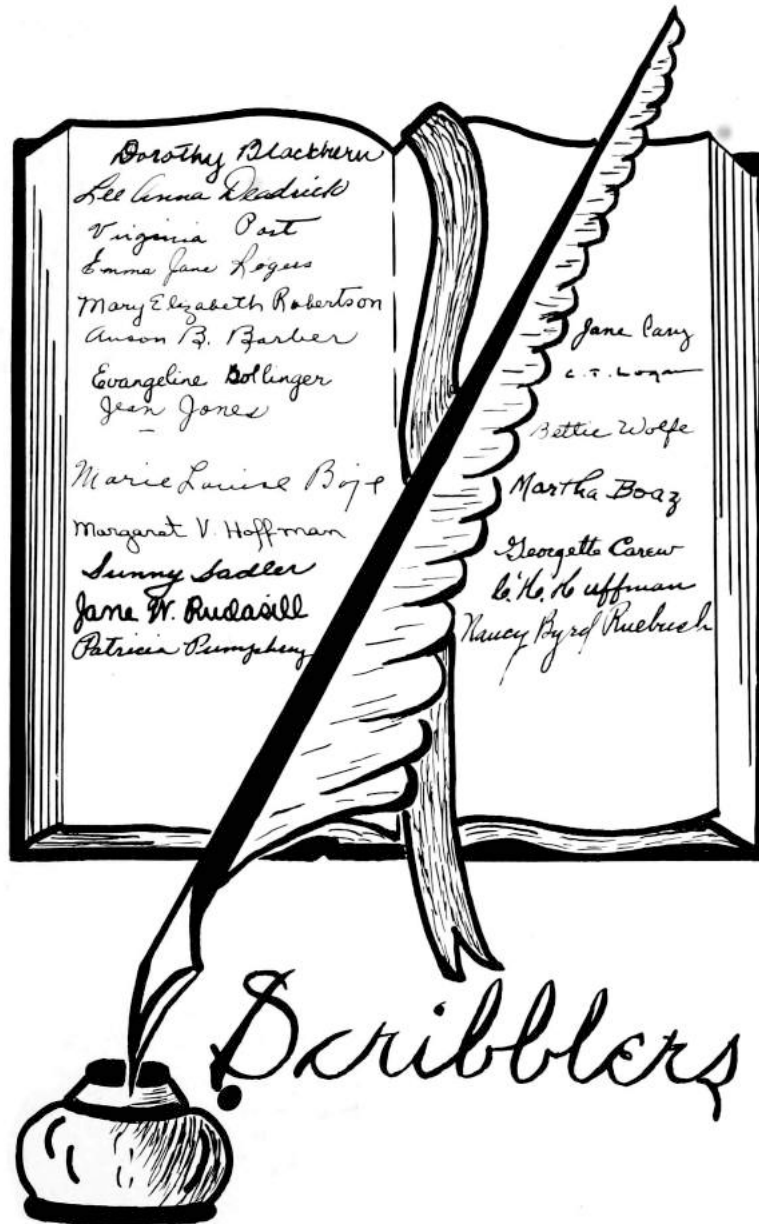 Dorothy Blackburn
Lee Anna Deadrick
Virginia Post
Emma Jane Rogers
Mary Elizabeth Robertson
Anson B. Barber
Evangeline Bollinger
Jean Jones
Marie Louise Boje
Margaret V. Hoffman
Sunny Sadler
Jane W. Rudasill
Patricia Pumphrey
Jane Cary
C. T. Logan
Bettie Wolfe
Martha Boaz
Georgette Carew
C. H. Huffman
Nancy Byrd Ruebush
Scribblers